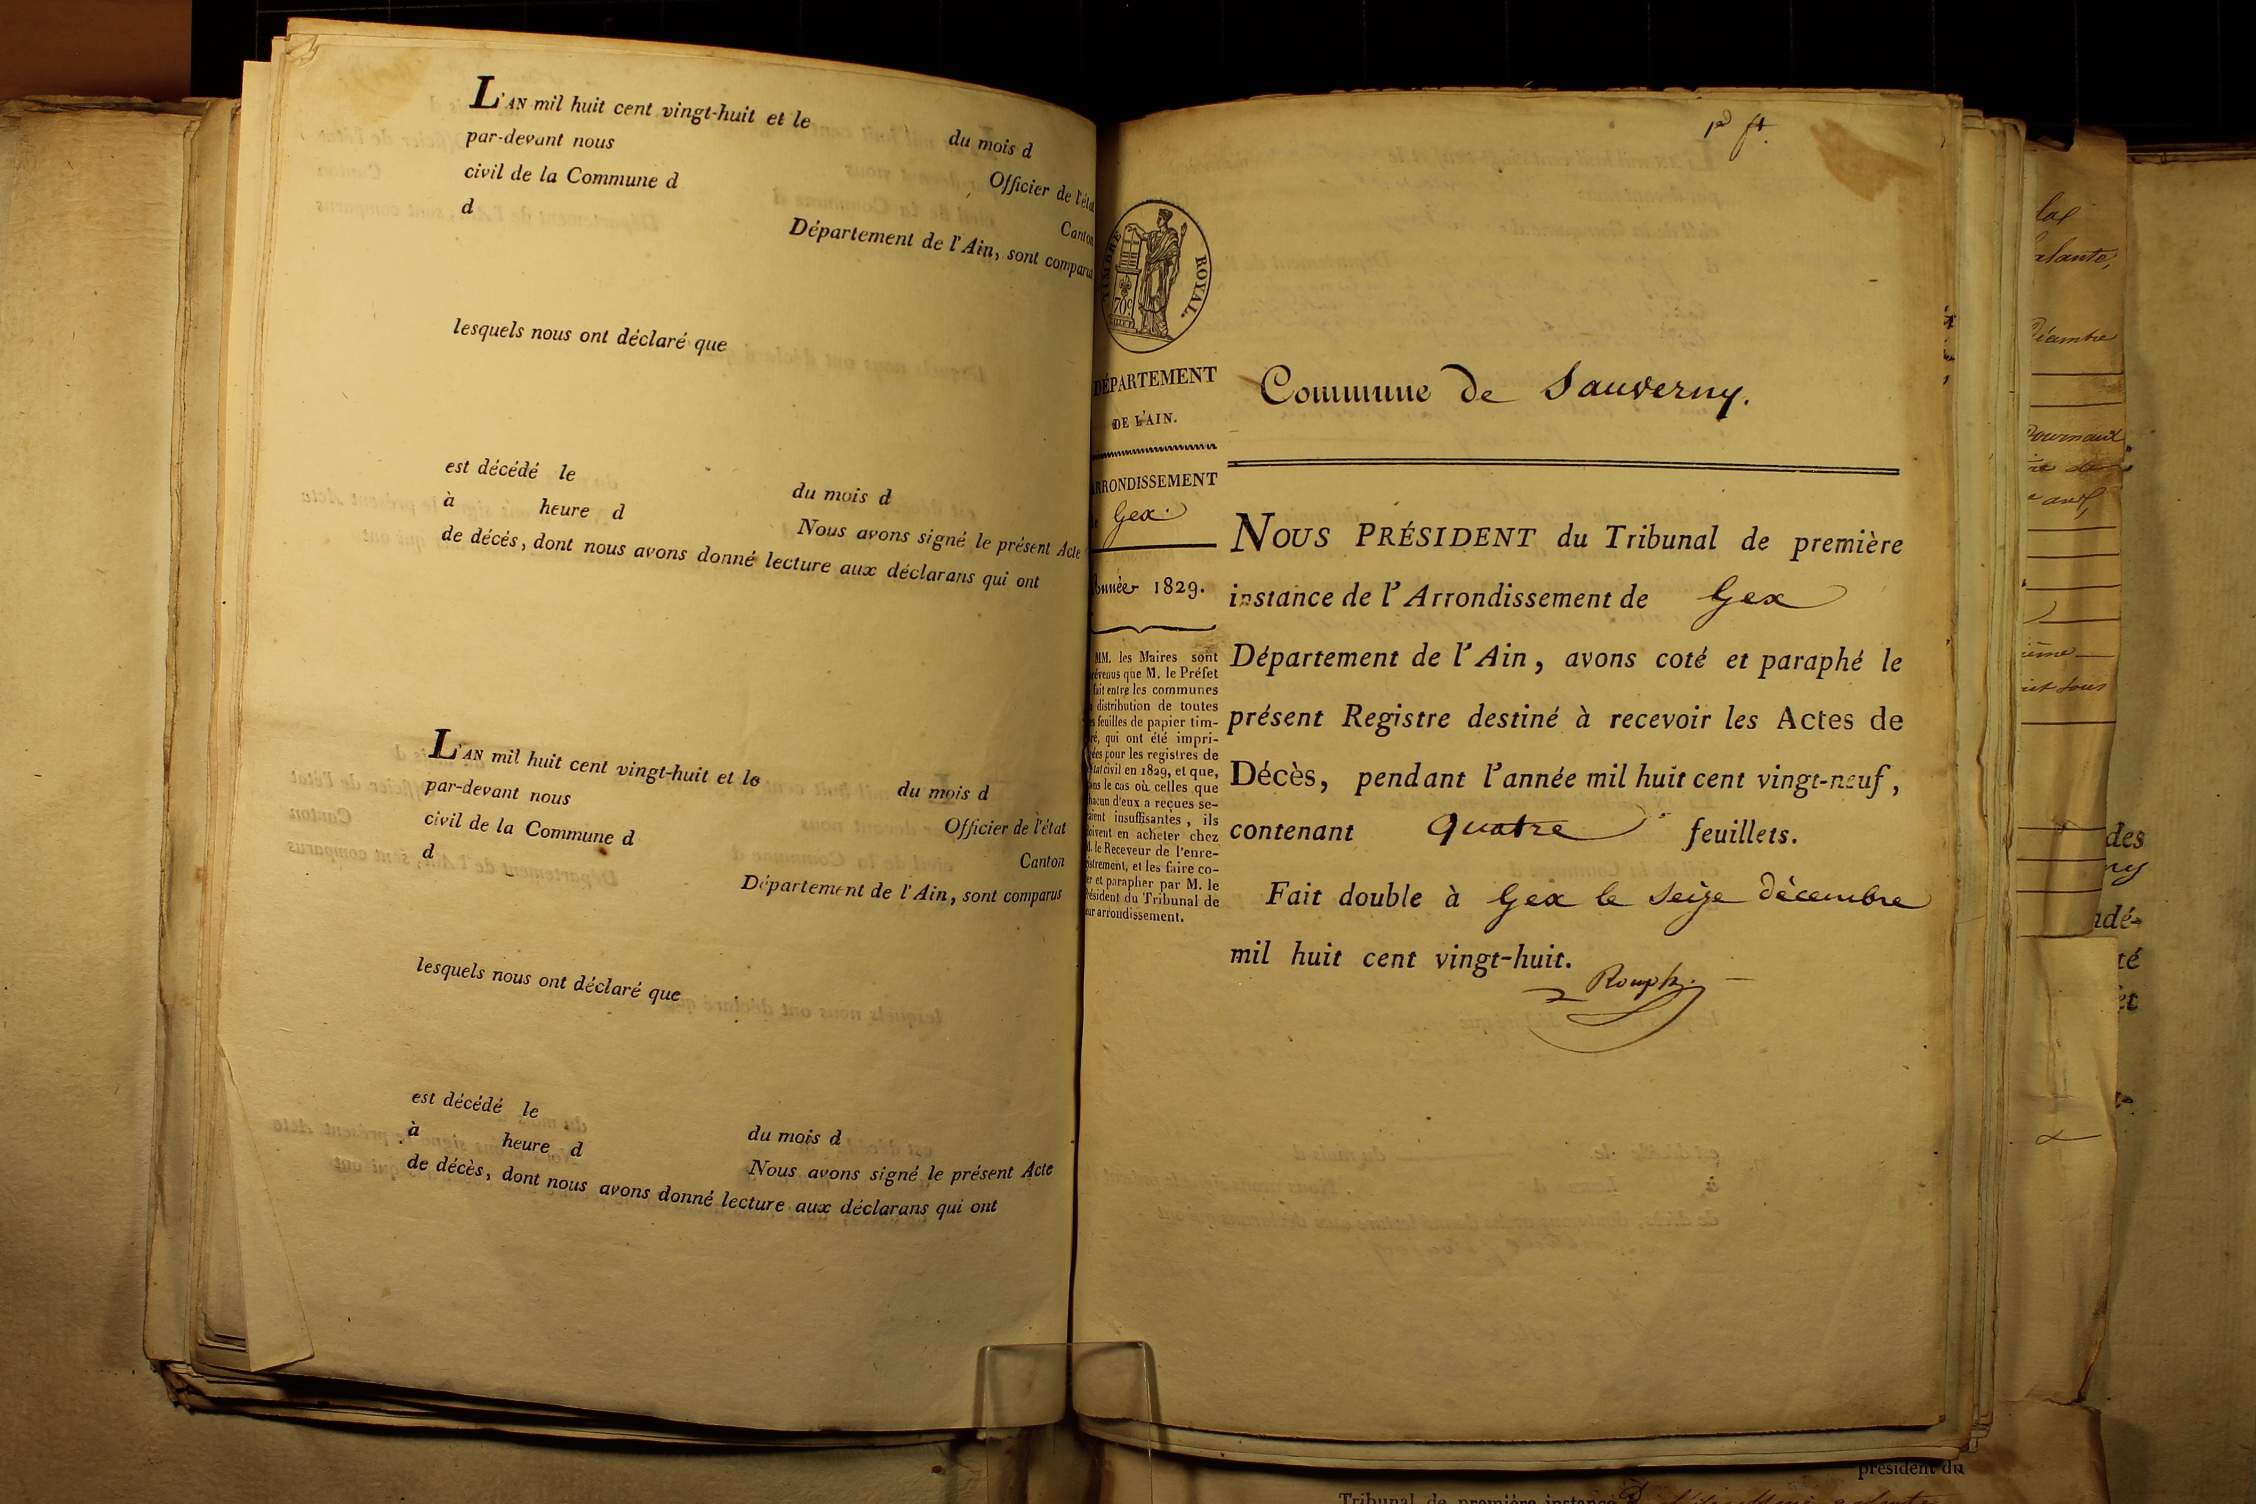 L'AN mil huit cent vingt-huit et le du mois d
par-devant nous Officier de l'état
civil de la Commune d Canton
d Département de l'Ain, sont comparus
lesquels nous ont déclaré que
est décédé le du mois d
à heure d Nous avons signé le présent Acte
de décès, dont nous avons donné lecture aux déclarans qui ont
L'AN mil huit cent vingt-huit et le du mois d
par-devant nous Officier de l'état
civil de la Commune d Canton
d Département de l'Ain, sont comparus
lesquels nous ont déclaré que
est décédé le du mois d
à heure d Nous avons signé le présent Acte
de décès, dont nous avons donné lecture aux déclarans qui ont
1er ft.
TIMBRE ROYAL.
70c
DÉPARTEMENT
DE L'AIN.
ARRONDISSEMENT
de Gex.
Année 1829.
MM. les Maires sont
prévenus que M. le Préfet
fait entre les communes
la distribution de toutes
les feuilles de papier tim-
bré, qui ont été impri-
mées pour les registres de
l'état civil en 1829, et que,
dans le cas où celles que
chacun d'eux a reçues se-
raient insuffisantes, ils
doivent en acheter chez
M. le Receveur de l'enre-
gistrement, et les faire co-
ter et parapher par M. le
Président du Tribunal de
leur arrondissement.
Commune de Sauverny.
NOUS PRÉSIDENT du Tribunal de première
instance de l'Arrondissement de Gex
Département de l'Ain, avons coté et paraphé le
présent Registre destiné à recevoir les Actes de
Décès, pendant l'année mil huit cent vingt-neuf,
contenant quatre feuillets.
Fait double à Gex le seize décembre
mil huit cent vingt-huit.
Rouph
président du
Tribunal de première instance